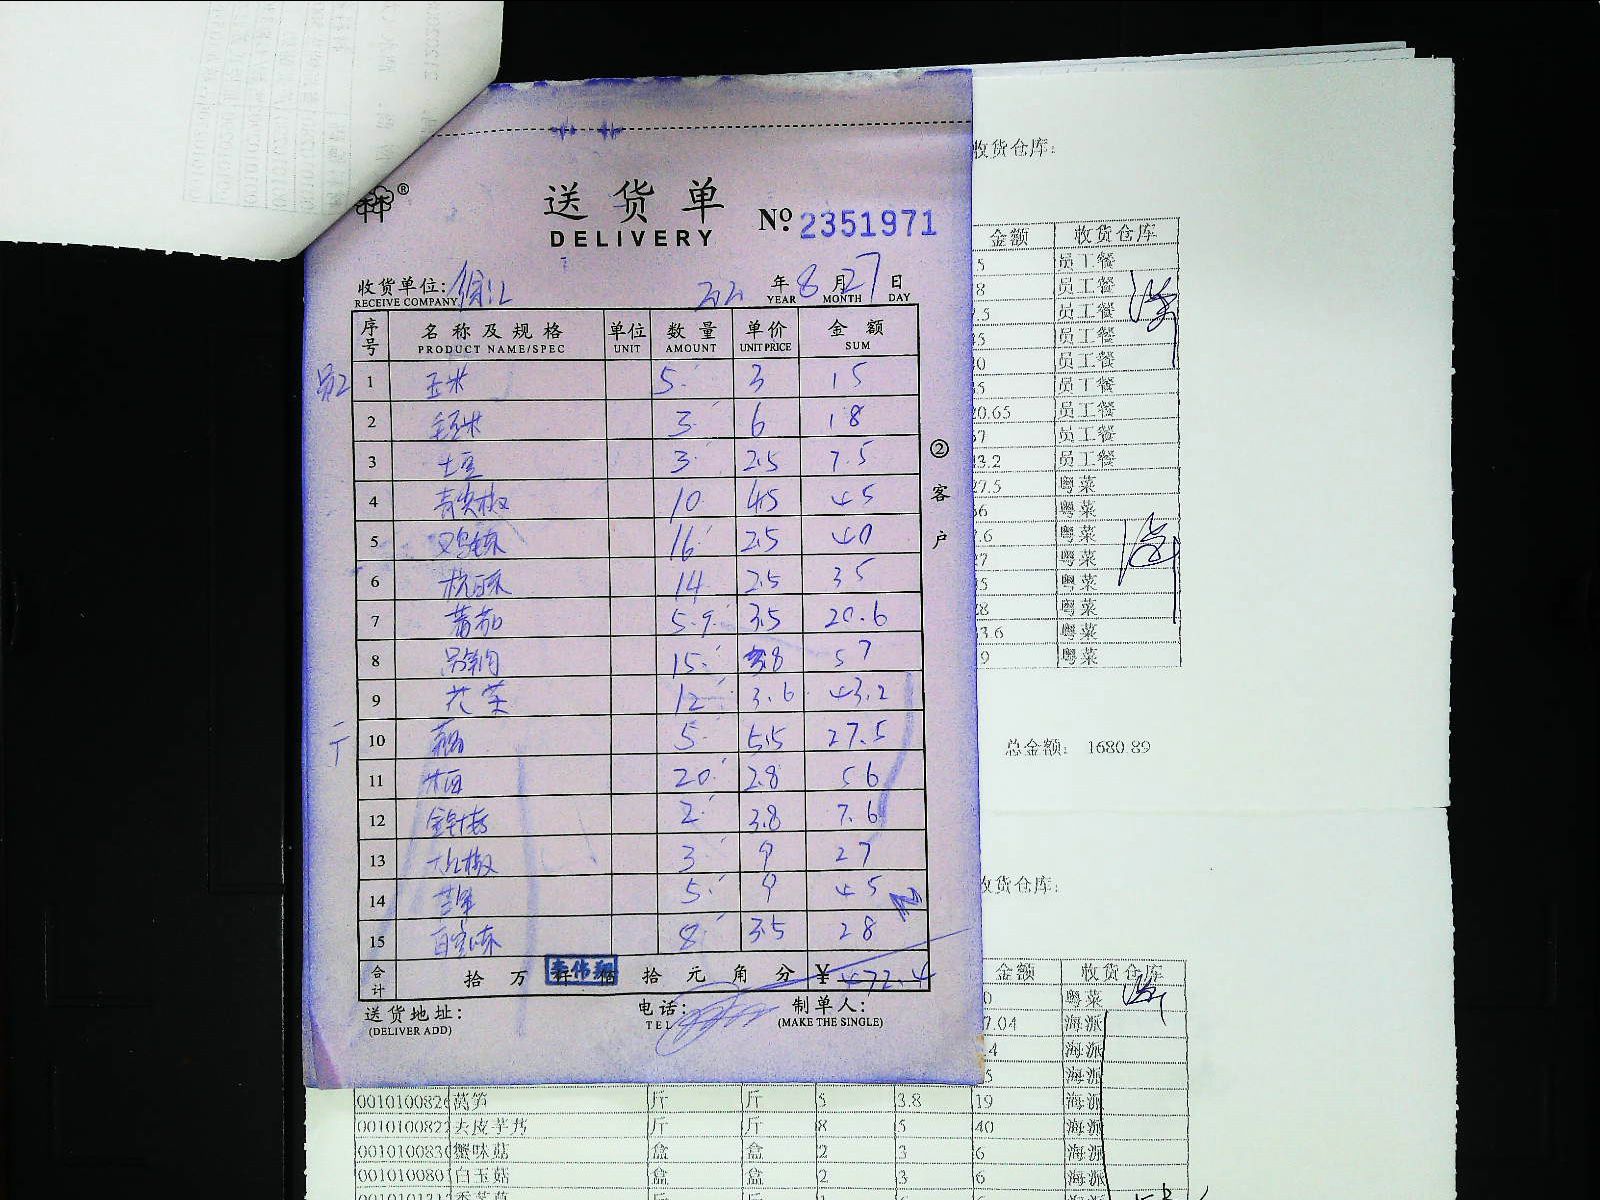 收货仓库:
®
送货单
DELIVERY
№ 2351971
收货单位: 徐汇 年 8 月 27 日
RECEIVE COMPANY YEAR MONTH DAY
序号 名称及规格 单位 数量 单价 金额
PRODUCT NAME/SPEC UNIT AMOUNT UNIT PRICE SUM
1 玉米 5 3 15
2 毛玉米 3 6 18
3 土豆 3 2.5 7.5
4 青尖椒 10 4.5 45
5 鸡毛菜 16 2.5 40
6 杭白菜 14 2.5 35
7 蕃茄 5.9 3.5 20.6
8 15 3.8 57
9 花菜 12 3.6 43.2
10 5 5.5 27.5
11 20 2.8 56
12 金针菇 2 3.8 7.6
13 3 9 27
14 5 9 45
15 8 3.5 28
合计 拾 万 仟 佰 拾 元 角 分 ¥ 472.4
李伟翔
送货地址: 电话: 制单人:
(DELIVER ADD) TEL (MAKE THE SINGLE)
②客户
金额 收货仓库
5 员工餐
8 员工餐
.5 员工餐
3 员工餐
0 员工餐
5 员工餐
20.65 员工餐
7 员工餐
43.2 员工餐
27.5 粤菜
56 粤菜
.6 粤菜
7 粤菜
5 粤菜
8 粤菜
3.6 粤菜
9 粤菜
总金额: 1680.89
收货仓库:
金额 收货仓库
0 粤菜
7.04 海派
.4 海派
5 海派
0010100826 莴笋 斤 斤 5 3.8 19 海派
0010100822 去皮芋艿 斤 斤 8 5 40 海派
0010100830 蟹味菇 盒 盒 2 3 6 海派
0010100801 白玉菇 盒 盒 2 3 6 海派